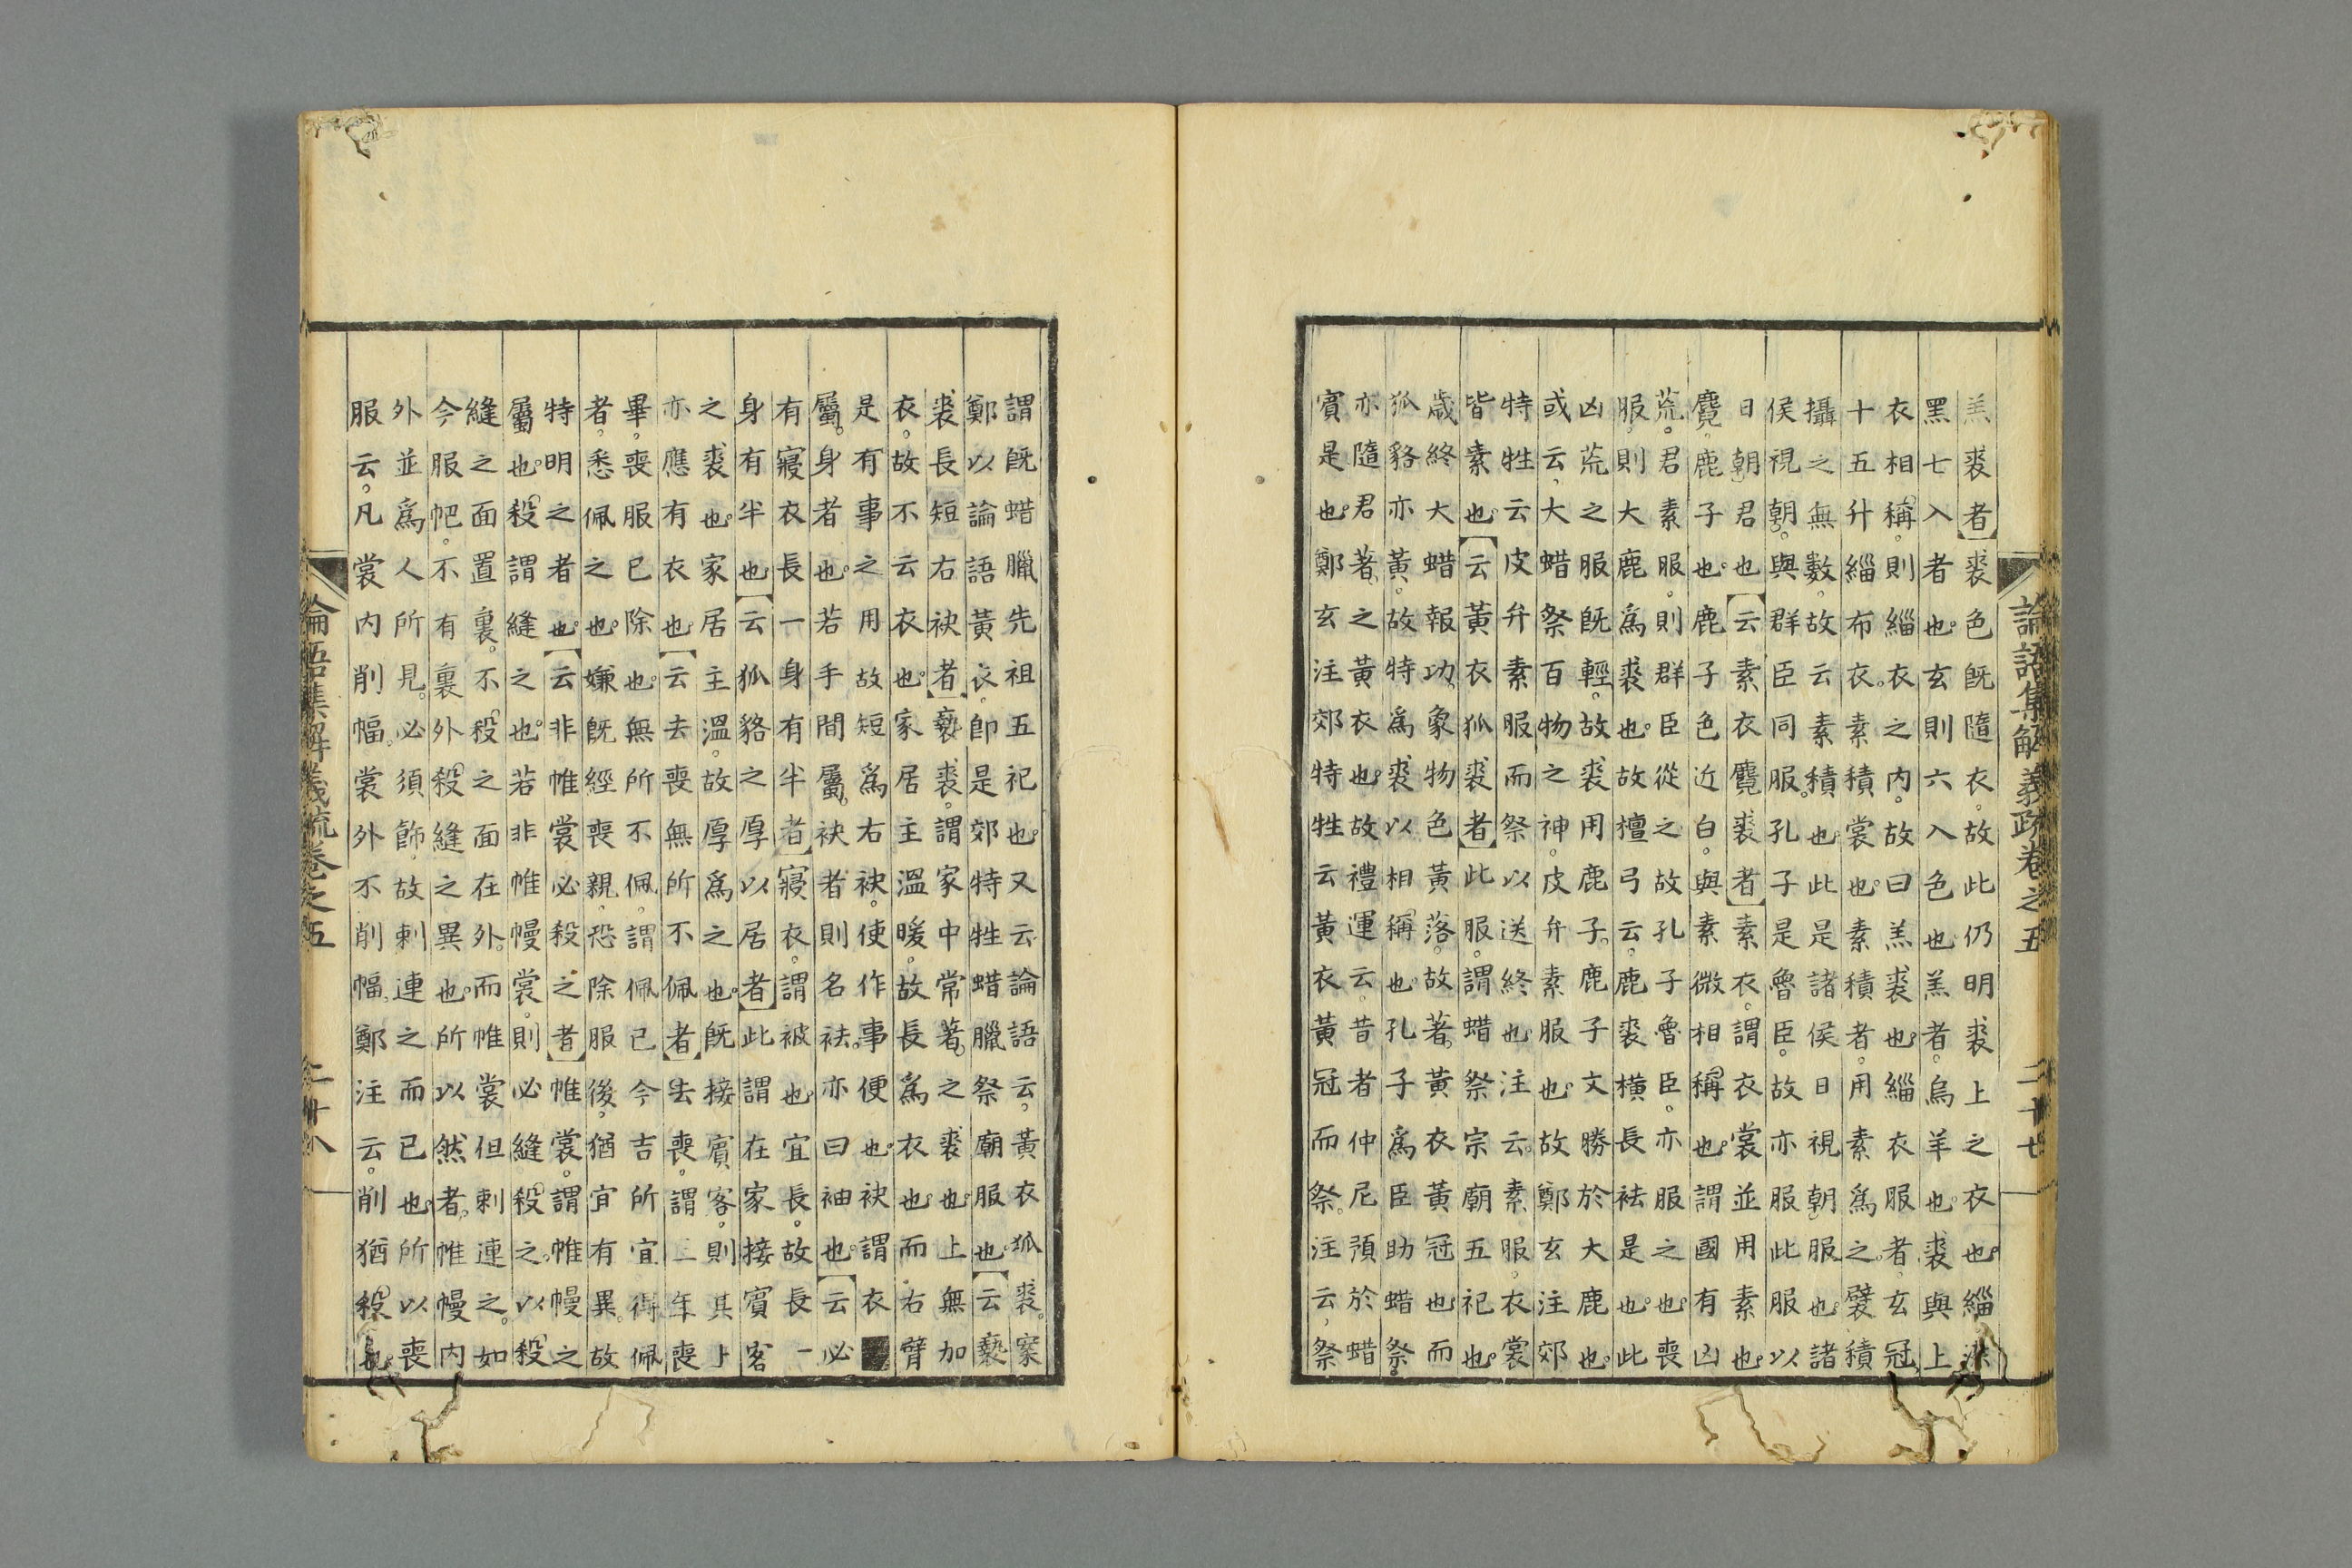 羔裘者裘色既隨衣故此仍明裘上之衣也緇染
黑七入者也玄則六入色也羔者烏羊也裘與上
衣相稱則緇衣之內故曰羔裘也緇衣服者玄冠
十五升緇布衣素積裳也素積者用素爲之襞積
攝之無數故云素積也此是諸侯日視朝服也諸
侯視朝與群臣同服孔子是魯臣故亦服此服以
日朝君也云素衣麑裘者素衣謂衣裳並用素也
麑鹿子也鹿子色近白與素微相稱也謂國有凶
荒君素服則群臣從之故孔子魯臣亦服之也喪
服則大鹿爲裘也故檀弓云鹿裘橫長袪是也此
凶荒之服既輕故裘用鹿子鹿子文勝於大鹿也
或云大蜡祭百物之神皮弁素服也故鄭玄注郊
特牲云皮弁素服而祭以送終也注云素服衣裳
皆素也云黃衣狐裘者此服謂蜡祭宗廟五祀也
歲終大蜡報功象物色黃落故著黃衣黃冠也而
狐貉亦黃故特爲裘以相稱也孔子爲臣助蜡祭
亦隨君著之黃衣也故禮運云昔者仲尼預於蜡
賓是也鄭玄注郊特牲云黃衣黃冠而祭注云祭
論語集解義疏卷之五 二十七
謂既蜡臘先祖五祀也又云論語云黃衣狐裘案
鄭以論語黃衣即是郊特牲蜡臘祭廟服也云褻
裘長短右袂者褻裘謂家中常著之裘也上無加
衣故不云衣也家居主溫暖故長爲衣也而右臂
是有事之用故短爲右袂使作事便也袂謂衣
屬身者也若手間屬袂者則名袪亦曰袖也云必
有寢衣長一身有半者寢衣謂被也宜長故長一
身有半也云狐貉之厚以居者此謂在家接賓客
之裘也家居主溫故厚爲之也既接賓客則其上
亦應有衣也云去喪無所不佩者去喪謂三年喪
畢喪服已除也無所不佩謂佩已今吉所宜得佩
者悉佩之也嫌既經喪親恐除服後猶宜有異故
特明之者也云非帷裳必殺之者帷裳謂帷幔之
屬也殺謂縫之也若非帷幔裳則必縫殺之以殺
縫之面置裏不殺之面在外而帷裳但刺連之如
今服帊不有裏外殺縫之異也所以然者帷幔內
外並爲人所見必須飾故刺連之而已也所以喪
服云凡裳內削幅裳外不削幅鄭注云削猶殺也
論語集解義疏卷之五 二十八